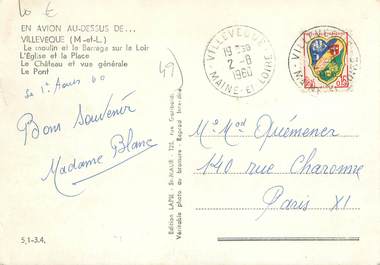 10 €
EN AVION AU-DESSUS DE...
VILLEVEQUE (M-et-L.)
Le moulin et le Barrage sur le Loir
L'Eglise et la Place
Le Château et vue générale
Le Pont
le 1er Aout 60
49
Bon Souvenir
Madame Blanc
5,1-3,4,
Edition LAPIE - St-MAUR - 123, rue Garibaldi.
Véritable photo au bromure - Reprod. Interdite
VILLEVEQUE
19 H
2-8
1960
MAINE-ET-LOIRE
0,05
Mr Mad Quémener
140 rue Charonne
Paris XI